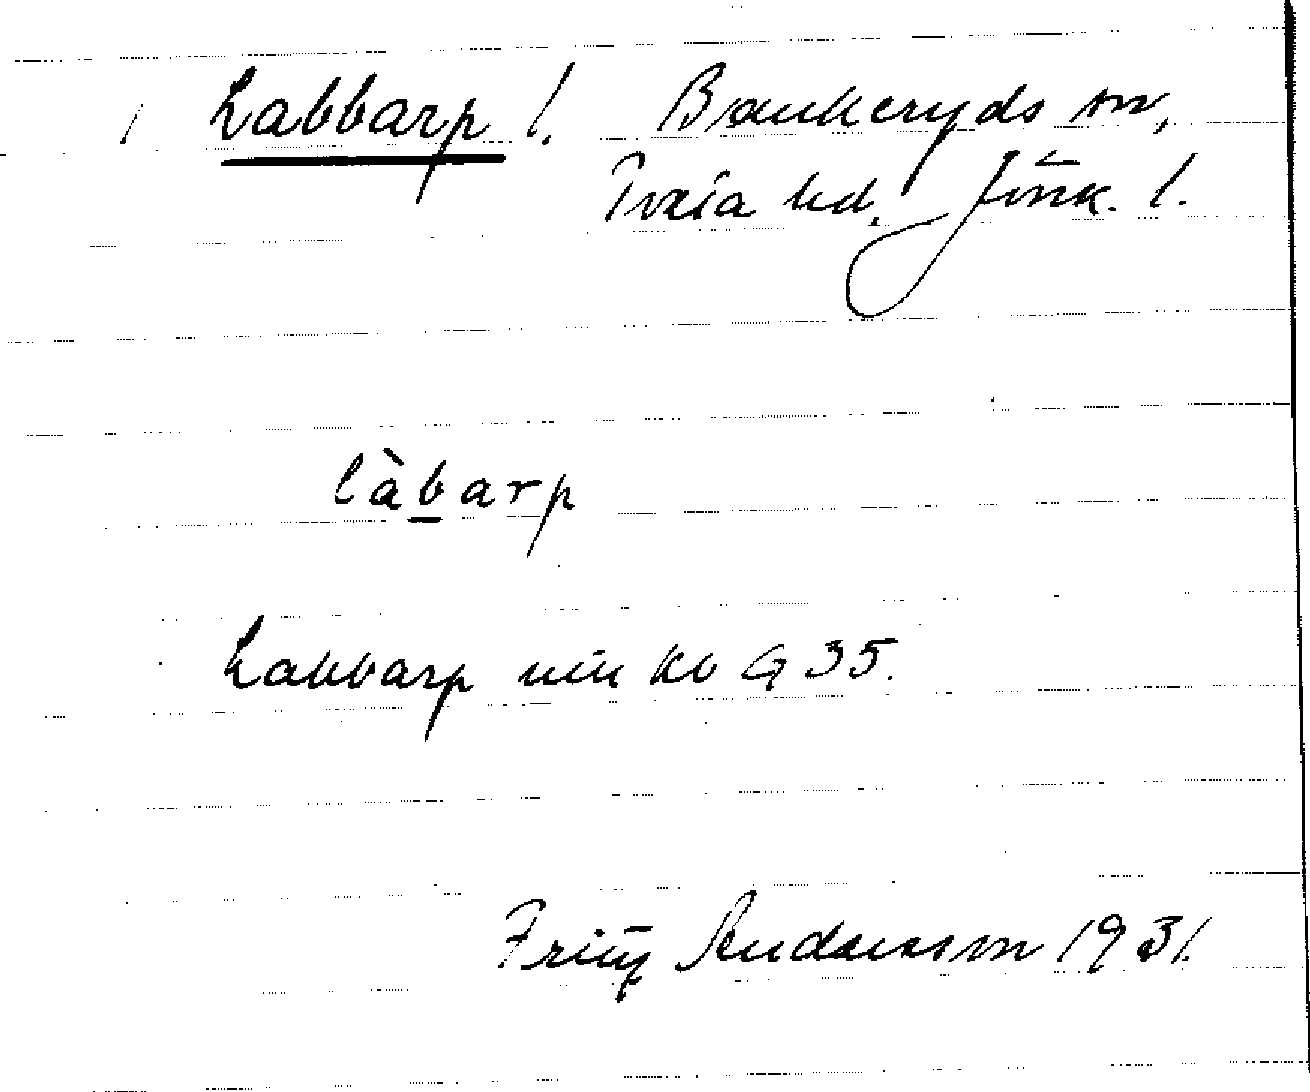 Labbarp l. Bankeryds sn,
Tveta hd. Jönk. l.
làbarp
Labbarp min kb G 35.
Fritz Andersson 1931